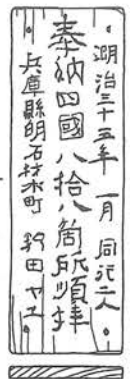 明治三十五年 一月 同行二人
奉納四國八拾八箇所順拝
兵庫縣明石材木町 釈田ヤエ